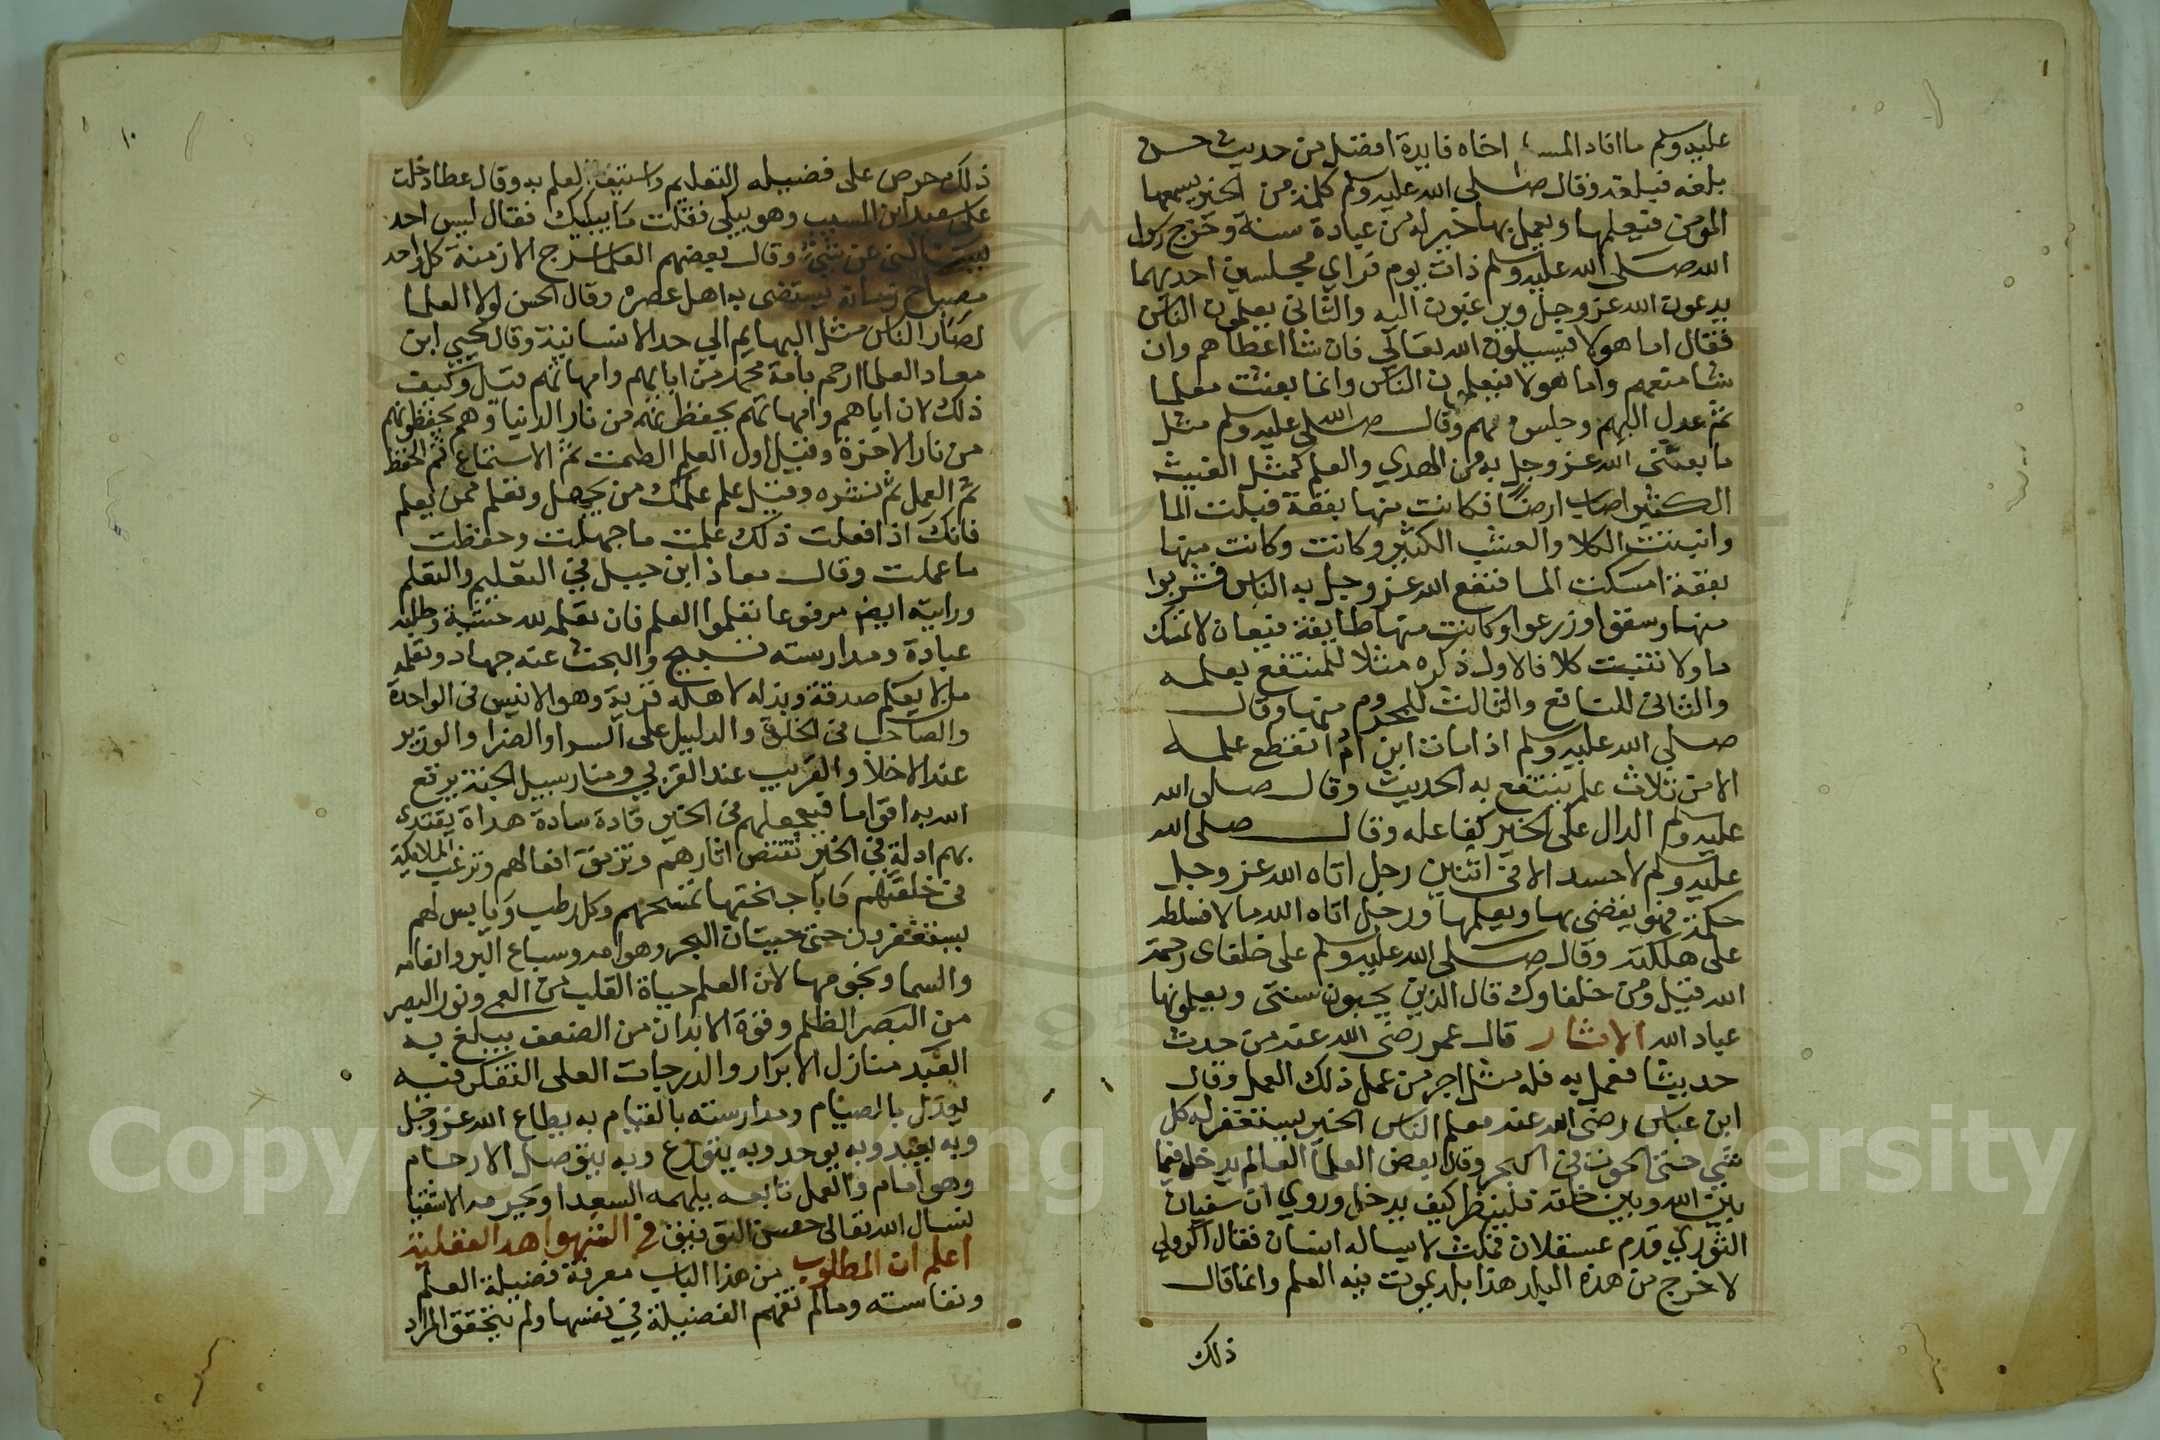 عليه وسلم ما افاد المسلم اخاه فايدة افضل من حديث حسن
بلغه فبلغه وقال صلى الله عليه وسلم كلمة من الخير يسمعها
المومن فيعلمها ويعمل بها خير له من عبادة سنة وخرج رسول
الله صلى الله عليه وسلم ذات يوم فراي مجلسين احدهما
يدعون الله عز وجل ويرغبون اليه والثاني يعلمون الناس
فقال اما هولا فيسيلون الله تعالي فان شا اعطاهم وان
شا منعهم واما هولا فيعلمون الناس وانما بعثت معلما
ثم عدل اليهم وجلس معهم وقال صلى الله عليه وسلم مثل
ما بعثني الله عز وجل به من الهدي والعلم كمثل الغيث
الكثير اصاب ارضا فكانت منها بقعة قبلت الما
وانبتت الكلا والعشب الكثير وكانت وكانت منها
بقعة امسكت الما فنفع الله عز وجل به الناس فشربوا
منها وسقوا وزرعوا وكانت منها طايفة قيعان لا تمسك
ما ولا تنبت كلا فالاول ذكره مثلا للمنتفع بعلمه
والثاني للنافع والثالث للمحروم منها وقال
صلي الله عليه وسلم اذا مات ابن ادم انقطع عمله
الا من ثلاث علم ينتفع به الحديث وقال صلى الله
عليه وسلم الدال على الخير كفاعله وقال صلى الله
عليه وسلم لا حسد الا في اثنين رجل اتاه الله عز وجل
حكمة فهو يقضي بها ويعلمها ورجل اتاه الله مالا فسلطه
على هلكته وقال صلى الله عليه وسلم على خلفاى رحمة
الله قيل ومن خلفاوك قال الذين يحيون سنتي ويعلمونها
عباد الله الاثار قال عمر رضي الله عنه من حدث
حديثا فعمل به فله مثل اجر من عمل ذلك العمل وقال
ابن عباس رضى الله عنه معلم الناس الخير يستغفر له كل
شي حتى الحوت في البحر وقال بعض العلما العالم يدخل فيما
بين الله وبين خلقه فلينظر كيف يدخل وروي ان سفيان
الثوري قدم عسقلان فمكث لا يساله انسان فقال اكروا لي
لاخرج من هذه البلد هذا بلد يموت فيه العلم وانما قال
ذلك
١٠
ذلك حرص على فضيله التعليم واستبقا العلم به وقال عطا دخلت
على سعيد ابن المسيب وهو يبكي فقلت ما يبكيك فقال ليس احد
يسالني عن شي وقال بعضهم العلما سرج الازمنة كل واحد
مصباح زمانه يستضى به اهل عصره وقال الحسن لولا العلما
لصار الناس مثل البهايم الي حد الانسانية وقال يحيي ابن
معاد العلما ارحم بامة محمد من ابايهم وامهاتهم قيل وكيف
ذلك لان اباهم وامهاتهم يحفظونهم من نار الدنيا وهم يحفظونهم
من نار الاخرة وقيل اول العلم الصمت ثم الاستماع ثم الحفظ
ثم العمل ثم نشره وقيل علم علمك من يجهل وتعلم ممن يعلم
فانك اذا فعلت ذلك علمت ما جهلت وحفظت
ما عملت وقال معاذ ابن جبل في التعليم والتعلم
ورايته ايض مرفوعا تعلموا العلم فان تعلمه لله خشية وطلبه
عبادة ومدارسته تسبيح والبحث عنه جهاد وتعلمه
من لا يعلم صدقة وبذله لاهله قربة وهو الانيس في الوحدة
والصاحب في الخلوة والدليل على السرا والضرا والوزير
عند الاخلا والقريب عند القربي ومنار سبيل الجنة يرفع
الله به اقواما فيجعلهم في الخير قادة سادة هداة يقتدى
بهم ادلة في الخير تقتص اثارهم وترمق افعالهم وترغب الملايكة
في خلتهم فاباجنحتها تمسحهم وكل رطب ويابس لهم
يستغفرون حتى حيتان البحر وهوامه وسباع البر وانعامه
والسما ونجومها لان العلم حياة القلب من العمى ونور البصر
من البصر الظلم وقوة الابدان من الضعف يبلغ به
العبد منازل الابرار والدرجات العلى التفكر فيه
يعدل بالصيام ومدارسته بالقيام به يطاع الله عز وجل
وبه يعبد وبه يوحد وبه يتورع وبه يتوصل الارحام
وهو امام والعمل تابعه يلهمه السعدا ويحرمه الاشقيا
نسال الله تعالى حسن التوفيق في الشواهد العقلية
اعلم ان المطلوب من هذا الباب معرفة فضيلة العلم
ونفاسته وما لم تفهم الفضيلة في نفسها ولم يتحقق المراد
Copyright © King Saud University